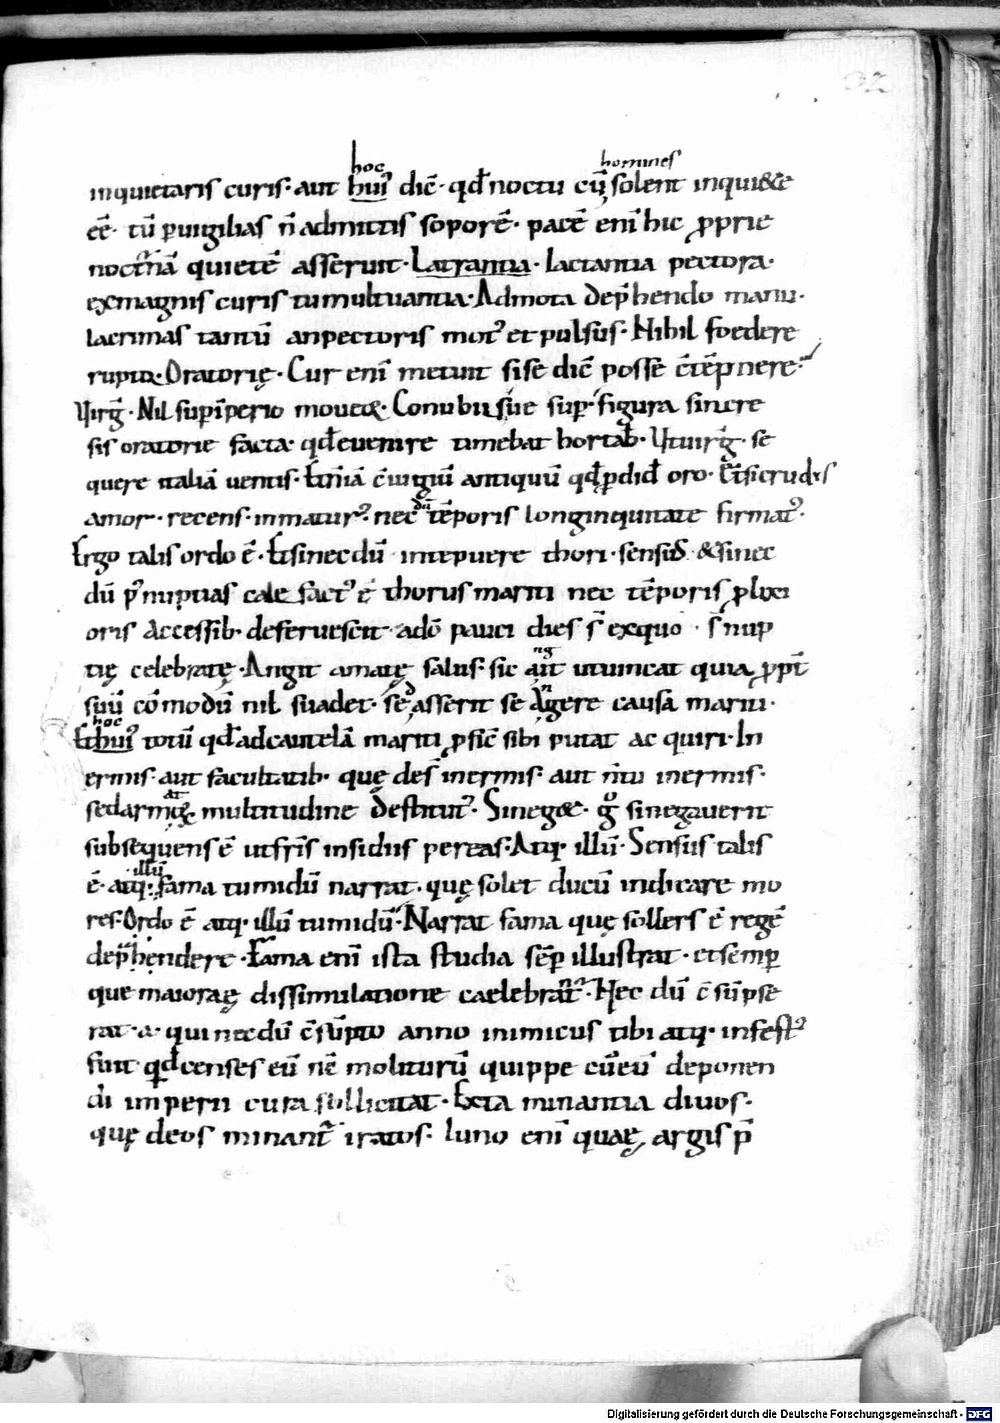 32
hoc homines
inquietaris curis· aut huiꝰ dic̄· qđ noctu cū solent inqui&e
eē· tū ꝑuigilias n̄ admittis soporē· pacē eni hic ꝓprie
nocťnā quietē asserunt· Latrantia· lactantia pectora·
ex magnis curis tumultuantia· Admota dep̄hendo manu·
lacrimas tantū anpectoris motꝰ et pulsus· Nihil foedere
rupto· Oratorię· Cur eni metunt si se dic̄ posse c̄tēpnere·
Virḡ· Nil suꝑ imperio moue&· Conubii sūe suꝑ figura sincre
sis oratorie facta· qđ euenire timebat hortat̄· Ut uirḡ· se
quere italiā uentis· c̄iugiū antiquū qđ ꝓdid̄ oro· Et si crudis
amor· recens· inmaturꝰ· nec dū tēporis longinquitate firmatꝰ·
Ergo talis ordo ē· Et si nec dū intepuere thori· sensus̄ & si nec
dū pꝰ nuptias cale factꝰ ē thorus mariti nec tēporis ꝓlixi
oris accessib· deferuescit· adō pauci dies s̄ ex quo · s̄ nup
tię celebratę· Angit amatę salus· sic ait ut uincat quia ꝓpt̄
suū cōmodū nil suadet· sed asserit se angere causa mariti·
hoc
Et huiꝰ totū qđ ad cautelā mariti ꝓfic̄ sibi putat ac quiri· In
ermis· aut facultatib· quę des̄ inermis· aut inermis·
sed armataq& multitudine destitutꝰ· Si neg&· gͦ si negauerit
subsequens ē ut fr̄is insidiis pereas· Atq· illū· Sensus talis
illū
ē· atq· fama tumidū narrat· quę solet ducū indicare mo
res· Ordo ē atq· illū tumidū· Narrat fama quę sollers ē regē
dep̄hendere· Fama eni ista studia sēꝑ illustrat· et semꝑ
que maiorę dissimulatione caelebrat̄· Hec dū c̄sūpse
rat· a· qui nec dū c̄sūpto anno inimicus tibi atq· infestꝰ
fuit· qđ censes eū nē moliturū quippe cū eū deponen
di imperii cura sollicitat· Et ta minantia diuos·
quę deos minant̄ iratos· Iuno eni quaę argis p̄
Digitalisierung gefördert durch die Deutsche Forschungsgemeinschaft - DFG